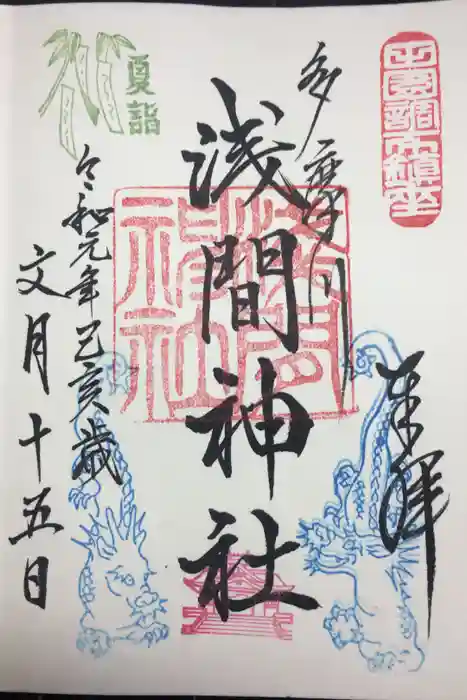 奉拝
多摩川
浅間神社
令和元年己亥歳
文月十五日
夏詣
浅間神社